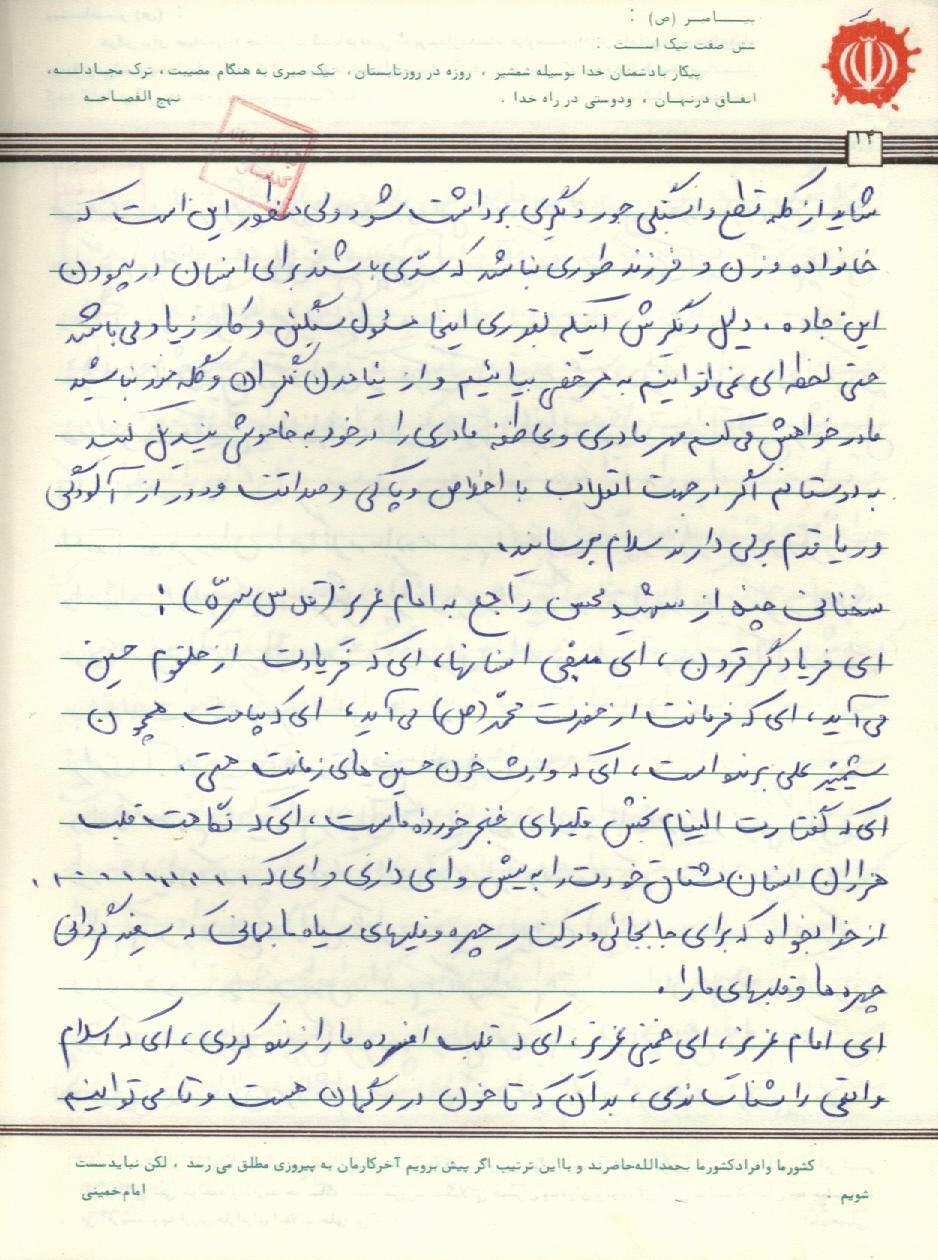 پیـــامبـر (ص) :
شش صفت نیک اســت :
پیکار بادشمنان خدا بوسیله شمشیر ، روزه در روز تابستان، نیک صبری به هنگام مصیبت، ترک مجـادلــه،
انفـاق در نهـان ، و دوستی در راه خدا . نهج الفصاحـه
۱۴
شاید از کلمه قطع وابستگی جور دیگری برداشت شود ولی منظور این است که
خانواده و زن و فرزند طوری نباشد که سدّی باشند برای انسان در پیمودن
این جاده ، دلیل دیگرش اینکه بقدری اینجا مسئولیت سنگین و کار زیاد می باشد
حتی لحظه ای نمی توانیم به مرخصی بیائیم و از نیامدن نگران و گله مند نباشید
مادر خواهش می کنم مهر مادری و عاطفه مادری را در خود به خاموشی تبدیل کنید
به دوستانم اگر در جهت انقلاب با اخلاص و پاکی و صداقت و دور از آلودگی
و ریا قدم برمی دارند سلام برسانید.
سخنانی چند از شهید محسن راجع به امام عزیز (قدس سرّه) :
ای فریادگر قرون ، ای منجی انسانها، ای که فریادت از حلقوم حسین
می آید ، ای که فرمانت از حضرت محمّد (ص) می آید ، ای که پیامت همچون
شمشیر علی برنده است ، ای که وارث خون حسین های زمانت هستی .
ای که گفتارت التیام بخش قلبهای خنجر خورده ماست ، ای که نگاهت قلب
هزاران انسان مشتاق خودت را به تپش وا می داری و ای که ..........
از خدا بخواه که برای ما بجائی در کنار چهره و قلبهای سیاه ما بمانی که سفید گردانی
چهره ها و قلبهای ما را .
ای امام عزیز ، ای خمینی عزیز ، ای که قلب افسرده ما را زنده کردی ، ای که اسلام
واقعی را شناساندی ، بدان که تا خون در رگمان هست و تا می توانیم
کشور ما و افراد کشور ما بحمدالله حاضرند و با این ترتیب اگر پیش برویم آخر کارمان به پیروزی مطلق می رسد ، لکن نباید سست
شویم . امام خمینی